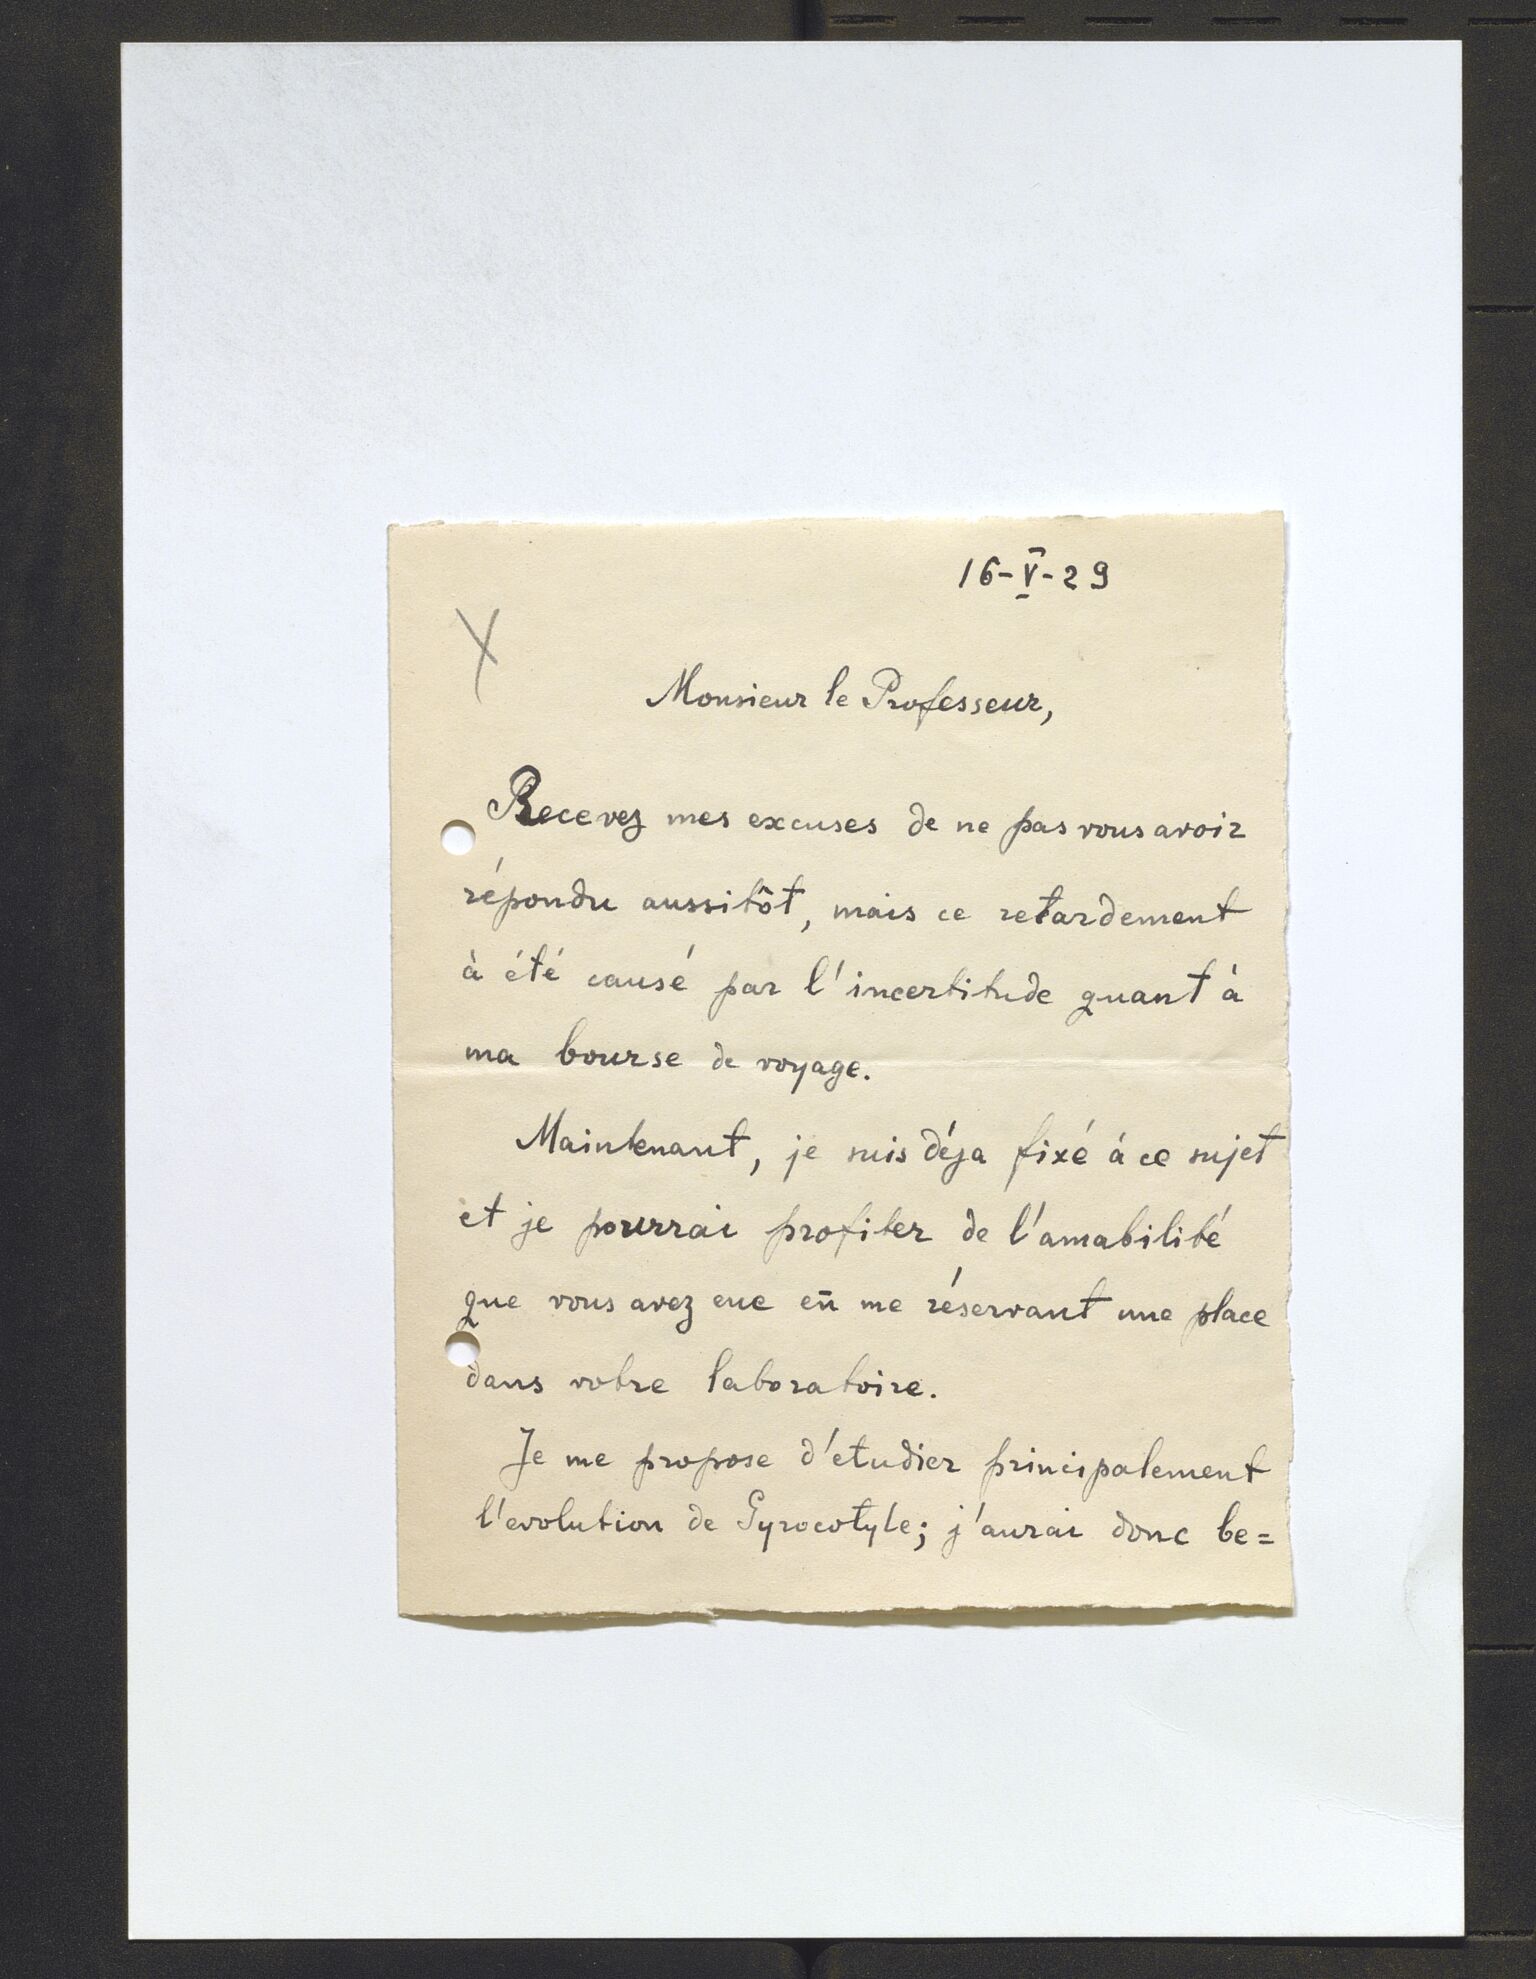 16-V-29
X
Monsieur le Professeur,
Recevez mes excuses de ne pas vous avoir
répondu aussitôt, mais ce retardement
à été causé par l'incertitude quant à
ma bourse de voyage.
Maintenant, je suis déja fixé á ce sujet
et je pourrai profiter de l'amabilité
que vous avez eue en me réservant une place
dans votre laboratoire.
Je me propose d'etudier principalement
l'evolution de Gyrocotyle; j'aurai donc be=